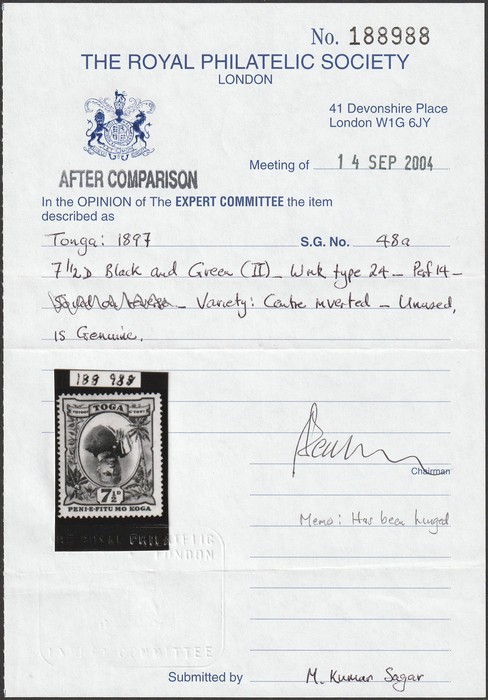 No. 188988
THE ROYAL PHILATELIC SOCIETY
LONDON
41 Devonshire Place
London W1G 6JY
Meeting of 14 SEP 2004
AFTER COMPARISON
In the OPINION of The EXPERT COMMITTEE the item
described as
Tonga: 1897 S.G. No. 48a
7½D Black and Green (II) - Wmk type 24 - Perf 14 -
- Variety: Centre inverted - Unused,
is Genuine.
188 988
TOGA
7½D
PENI-E-FITU MO KOGA
Chairman
Memo: Has been hinged
THE ROYAL PHILATELIC
LONDON
EXPERT COMMITTEE
Submitted by M. Kumar Sagar